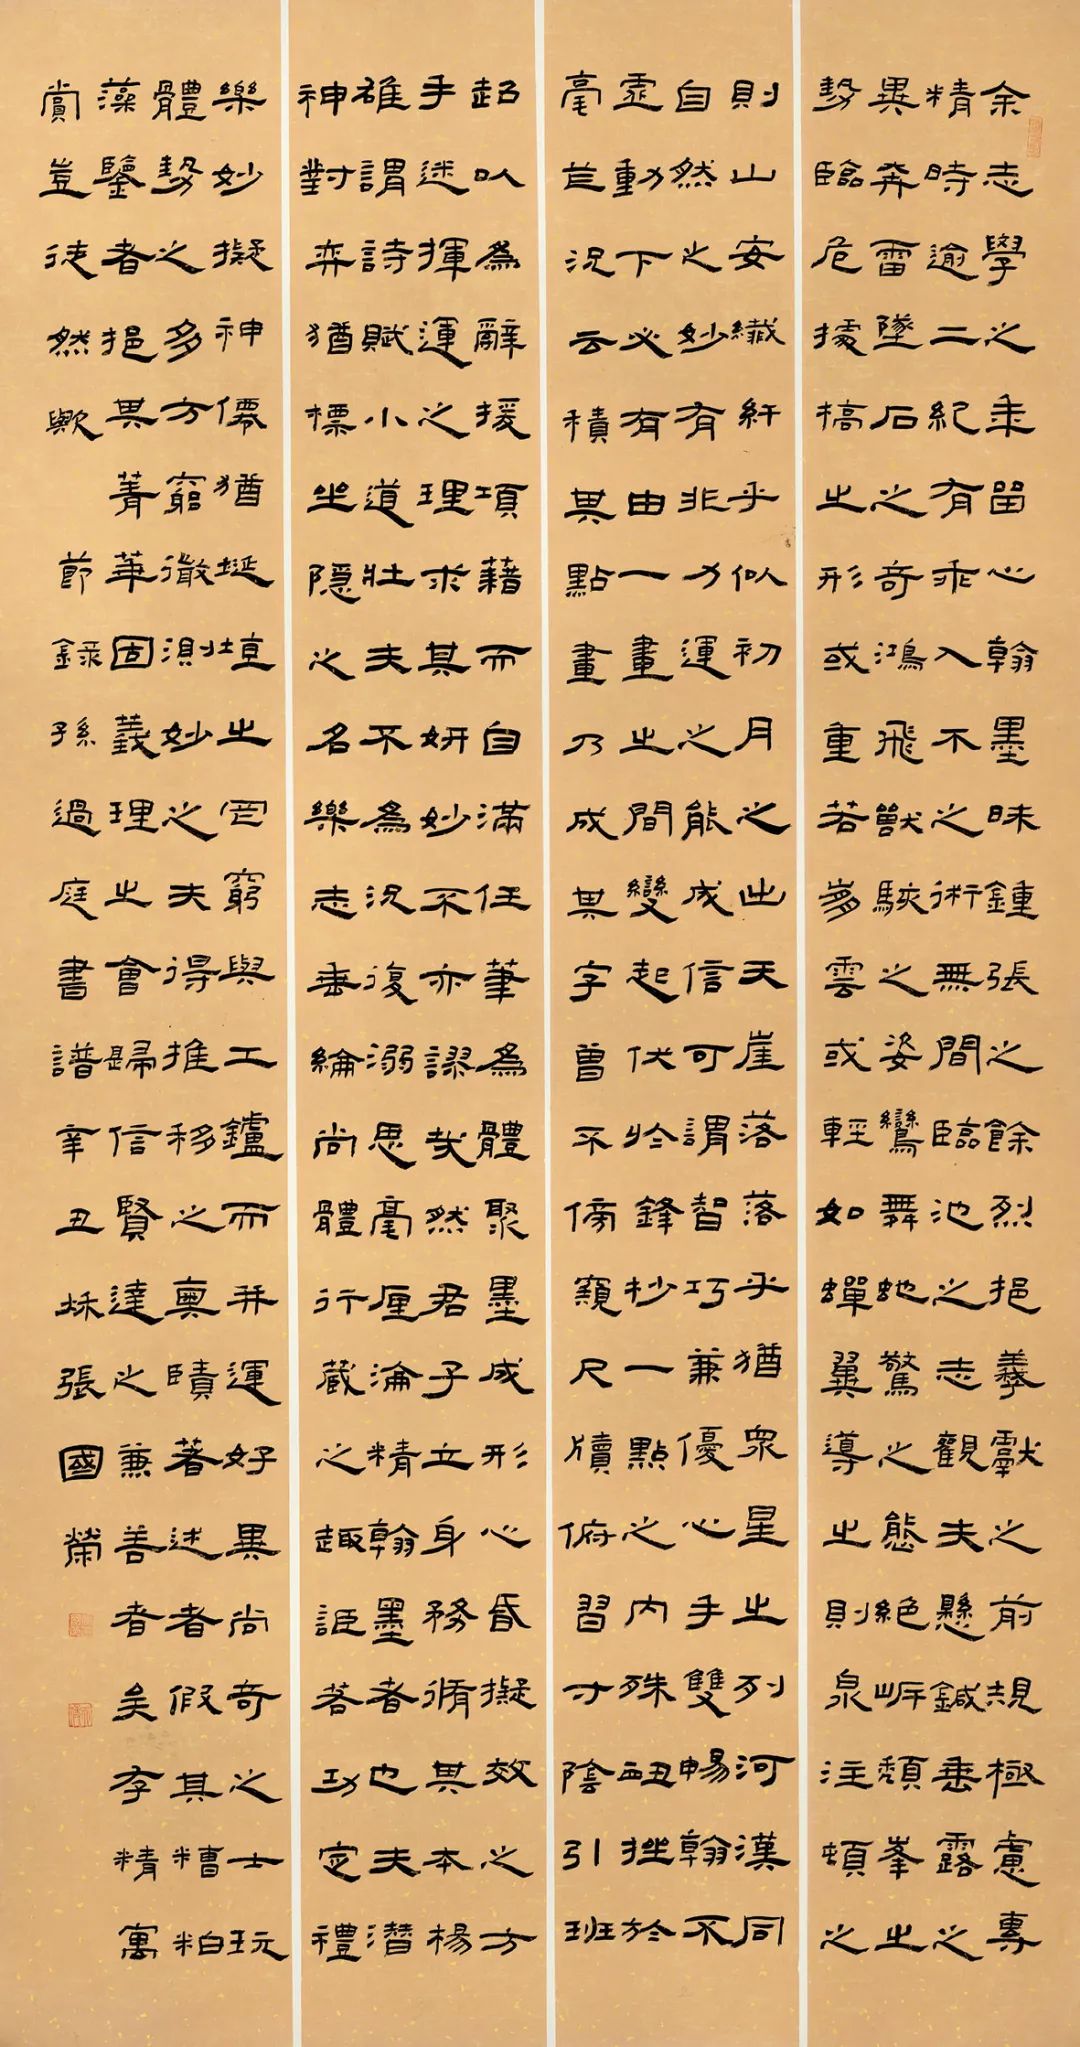 余志學之年留心翰墨昧鍾張之餘烈挹羲獻之前規極慮專
精時逾二紀有乖入不之術無間臨池之志觀夫懸鍼垂露之
異奔雷墜石之奇鴻飛獸駭之姿鸞舞蛇驚之態絕岸頹峯之
勢臨危據槁之形或重若崩雲或輕如蟬翼導之則泉注頓之
則山安纖纤乎似初月之出天崖落落乎猶眾星之列河漢同
自然之妙有非力運之能成信可謂智巧兼優心手雙暢翰不
虛動下必有由一畫之間變起伏於鋒杪一點之內殊衄挫於
毫芒況云積其點畫乃成其字曾不傍窺尺牘俯習寸陰引班
超以為辭援項藉而自滿任筆為體聚墨成形心昏擬效之方
手迷揮運之理求其妍妙不亦謬哉然君子立身務脩其本楊
雄謂詩賦小道壯夫不為況復溺思毫厘淪精翰墨者也夫潛
神對弈猶標坐隱之名樂志垂綸尚體行藏之趣詎若功定禮
樂妙擬神僊猶埏埴之罔窮與工鑪而并運好異尚奇之士玩
體勢之多方窮微測妙之夫得推移之奧賾著述者假其糟粕
藻鑒者挹其菁華固義理之會歸信賢達之兼善者矣存精寓
賞豈徒然歟 節錄孫過庭書譜辛丑秋張國榮